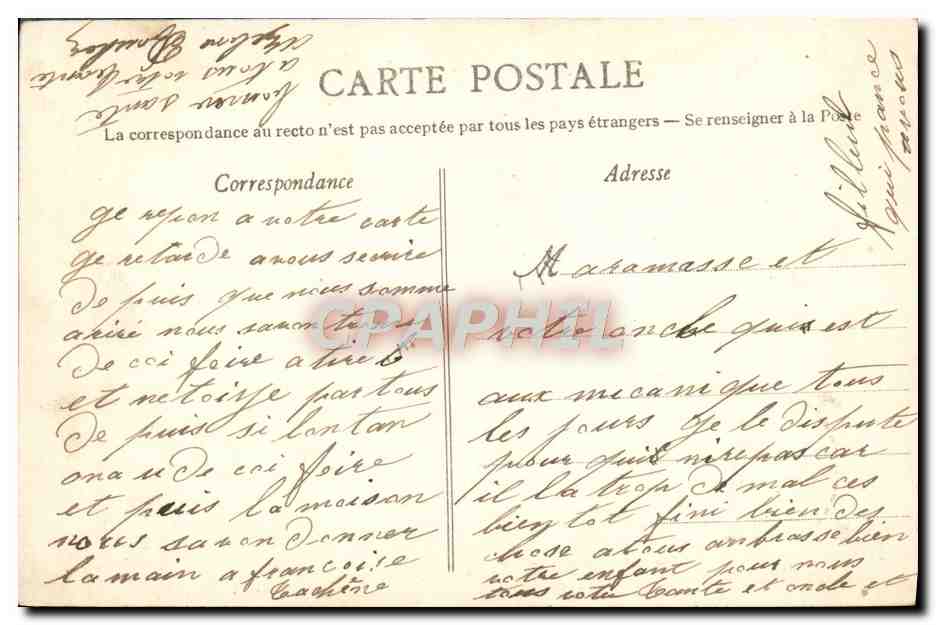 CARTE POSTALE
La correspondance au recto n'est pas acceptée par tous les pays étrangers — Se renseigner à la Poste
Correspondance
ge repon a votre carte
ge retarde avous secrire
de puis que nous somme
ariré nous savon trous
de coi foire a tire
et netoiye partous
de puis si lontan
ona u de coi foire
et puis la maison
nous savon donner
la main a francoise
Cachêne
Adresse
a ramasse et
votre oncle qui est
aux mecanique tous
les jours ge le dispute
pour quil nirepas car
il la trop de mal ces
bientot fini bien des
chose atous anbrasse bien
votre enfant pour nous
tous votre tante et oncle et
filleul
qui pance
avous
bonne santé
a tous votre tante
CPAPHIL